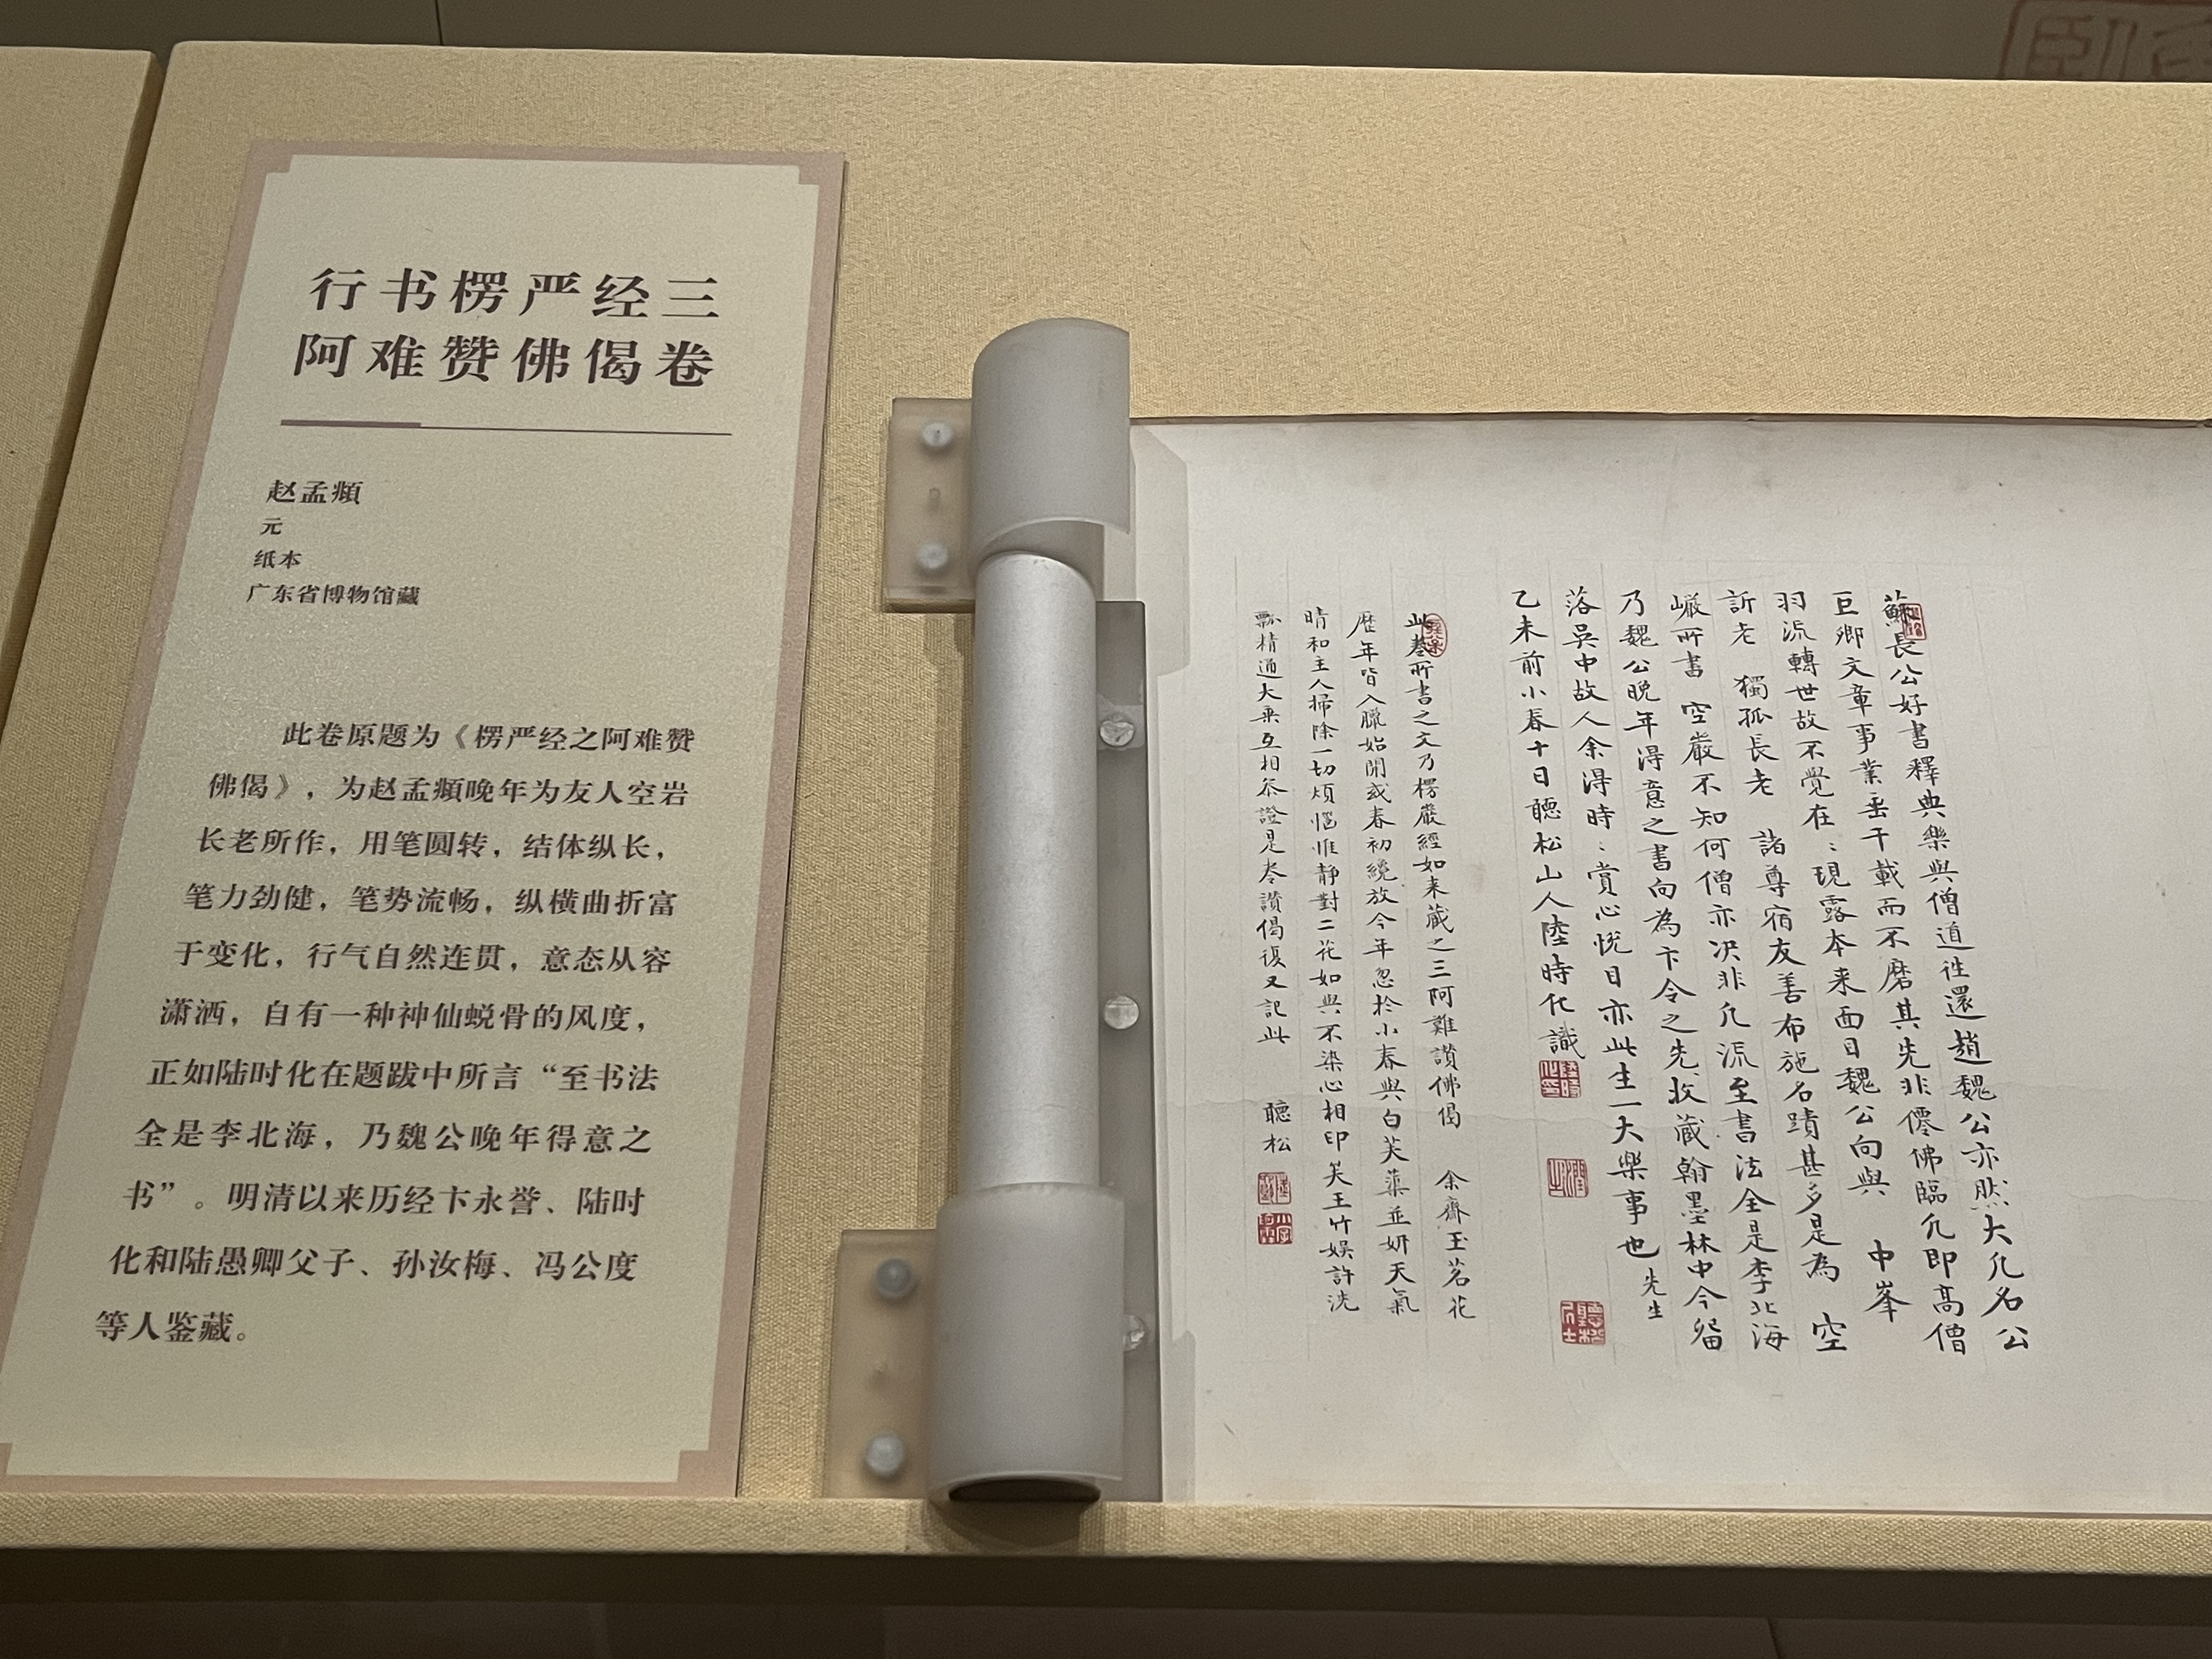 行书楞严经三
阿难赞佛偈卷
赵孟頫
元
纸本
广东省博物馆藏
此卷原题为《楞严经之阿难赞
佛偈》，为赵孟頫晚年为友人空岩
长老所作，用笔圆转，结体纵长，
笔力劲健，笔势流畅，纵横曲折富
于变化，行气自然连贯，意态从容
潇洒，自有一种神仙蜕骨的风度，
正如陆时化在题跋中所言“至书法
全是李北海，乃魏公晚年得意之
书”。明清以来历经卞永誉、陆时
化和陆愚卿父子、孙汝梅、冯公度
等人鉴藏。
蘇長公好書釋典樂與僧道往還趙魏公亦然大凢名公
巨卿文章事業垂千載而不磨其先非僊佛臨凢即高僧
羽流轉世故不覺在：現露本来面目魏公向與 中峯
訢老 獨孤長老 諸尊宿友善布施名蹟甚多是為 空
巗所書 空巖不知何僧亦决非凢流至書法全是李北海
乃魏公晚年得意之書向為卞令之先收藏翰墨林中今留
落吳中故人余得時：賞心悅目亦此生一大樂事也先生
乙未前小春十日聽松山人陸時化識
此卷所書之文乃楞嚴經如来藏之三阿難讃佛偈 余齋玉茗花
歷年皆入臘始開或春初纔放今年忽於小春與白芙蕖並妍天氣
晴和主人掃除一切煩惱惟靜對二花如與不染心相印芙王竹娛許洗
瓢精通大乘互相叅證是卷讃偈復又記此 聽松